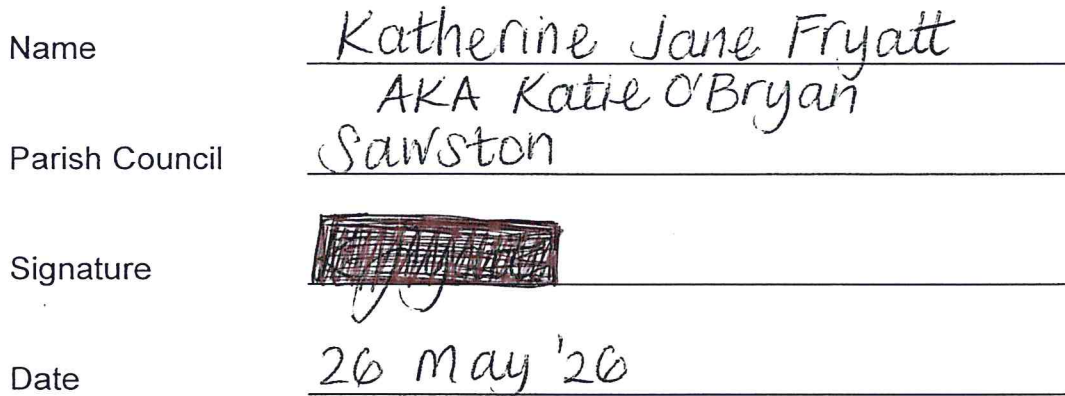 Name Katherine Jane Fryatt
AKA Katie O'Bryan
Parish Council Sawston
Signature
Date 26 May '26